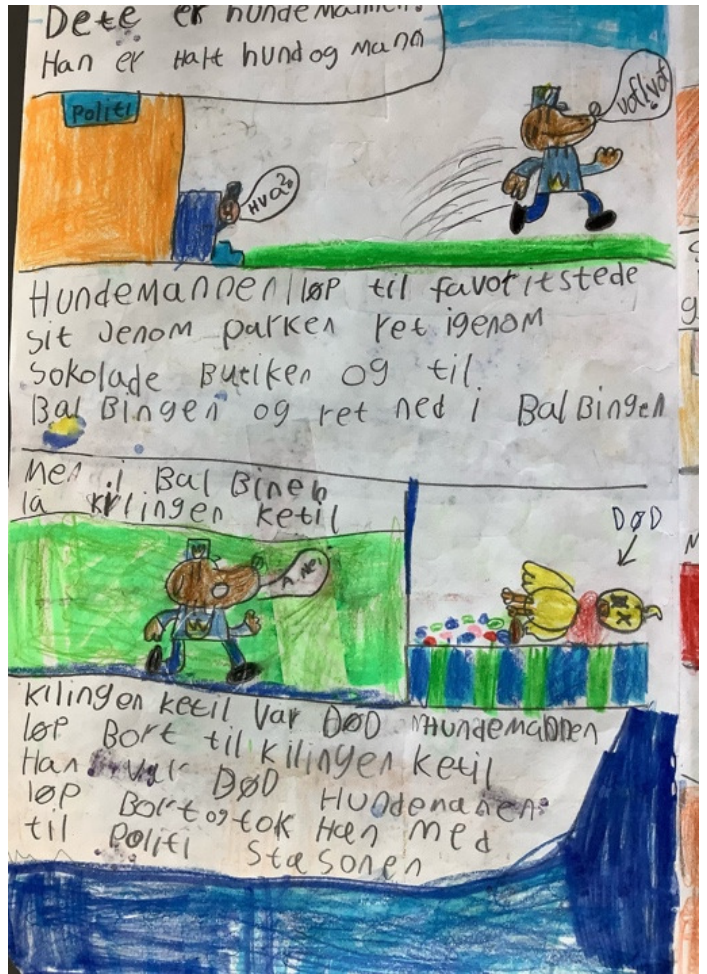 Dete er hundemannen.
Han er Halt hund og mann
Politi
HVa?
Vof!vof
HundeMannen løp til favoritstede
sit Jenom parken ret igenom
Sokolade Butiken og til
Bal Bingen og ret ned i BalBingen
Men i Bal Bineh
lå kilingen ketil
DØD
A Nei
kilingen ketil Var DØD HundeMannen
løp Bort til kilingen ketil
Han var DØD Hundemanen
løp Bort og tok Han med
til Politi Stasonen